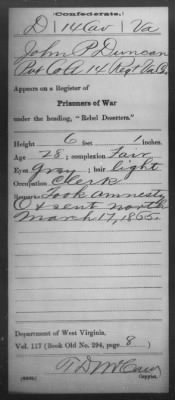 (Confederate.)
D | 14 Cav | Va
John P Duncan
Pvt Co D 14 Regt Va C.
Appears on a Register of
Prisoners of War
under the heading, "Rebel Deserters."
Height 6 feet inches
Age 28; complexion Fair
Eyes Gray; hair light
Occupation Clerk
Remarks Took amnesty
O & sent north
March 17, 1865.
Department of West Virginia,
Vol. 117 (Book Old No. 294, page 8)
T D McCaw
Copyist.